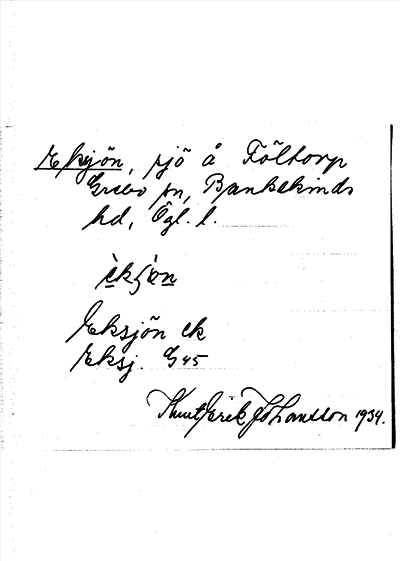 Eksjön, sjö å Föltorp
Grebo sn, Bankekinds
hd, Ögl. l.
èkʃö̀n
Eksjön ek
Eksj. G 45
Knut Erik Johansson 1934.